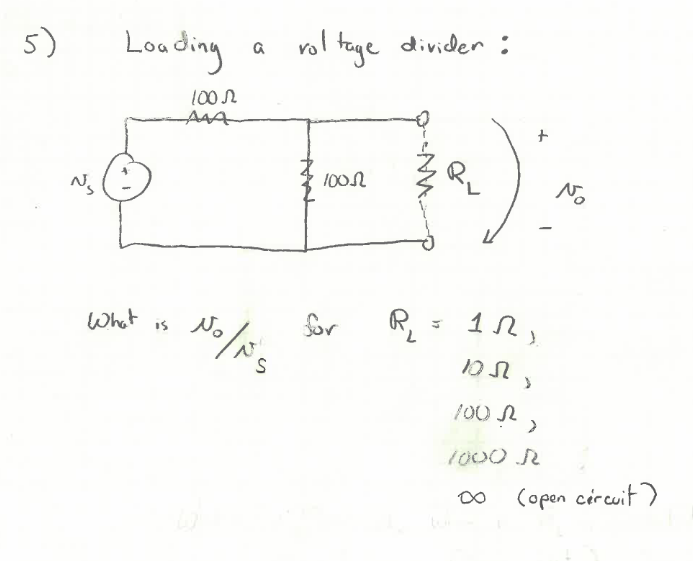 5) Loading a voltage divider :
100Ω
+
-
Ns
100Ω
RL
+
No
-
What is No/Ns for RL = 1Ω,
10Ω,
100Ω,
1000Ω
∞ (open circuit)